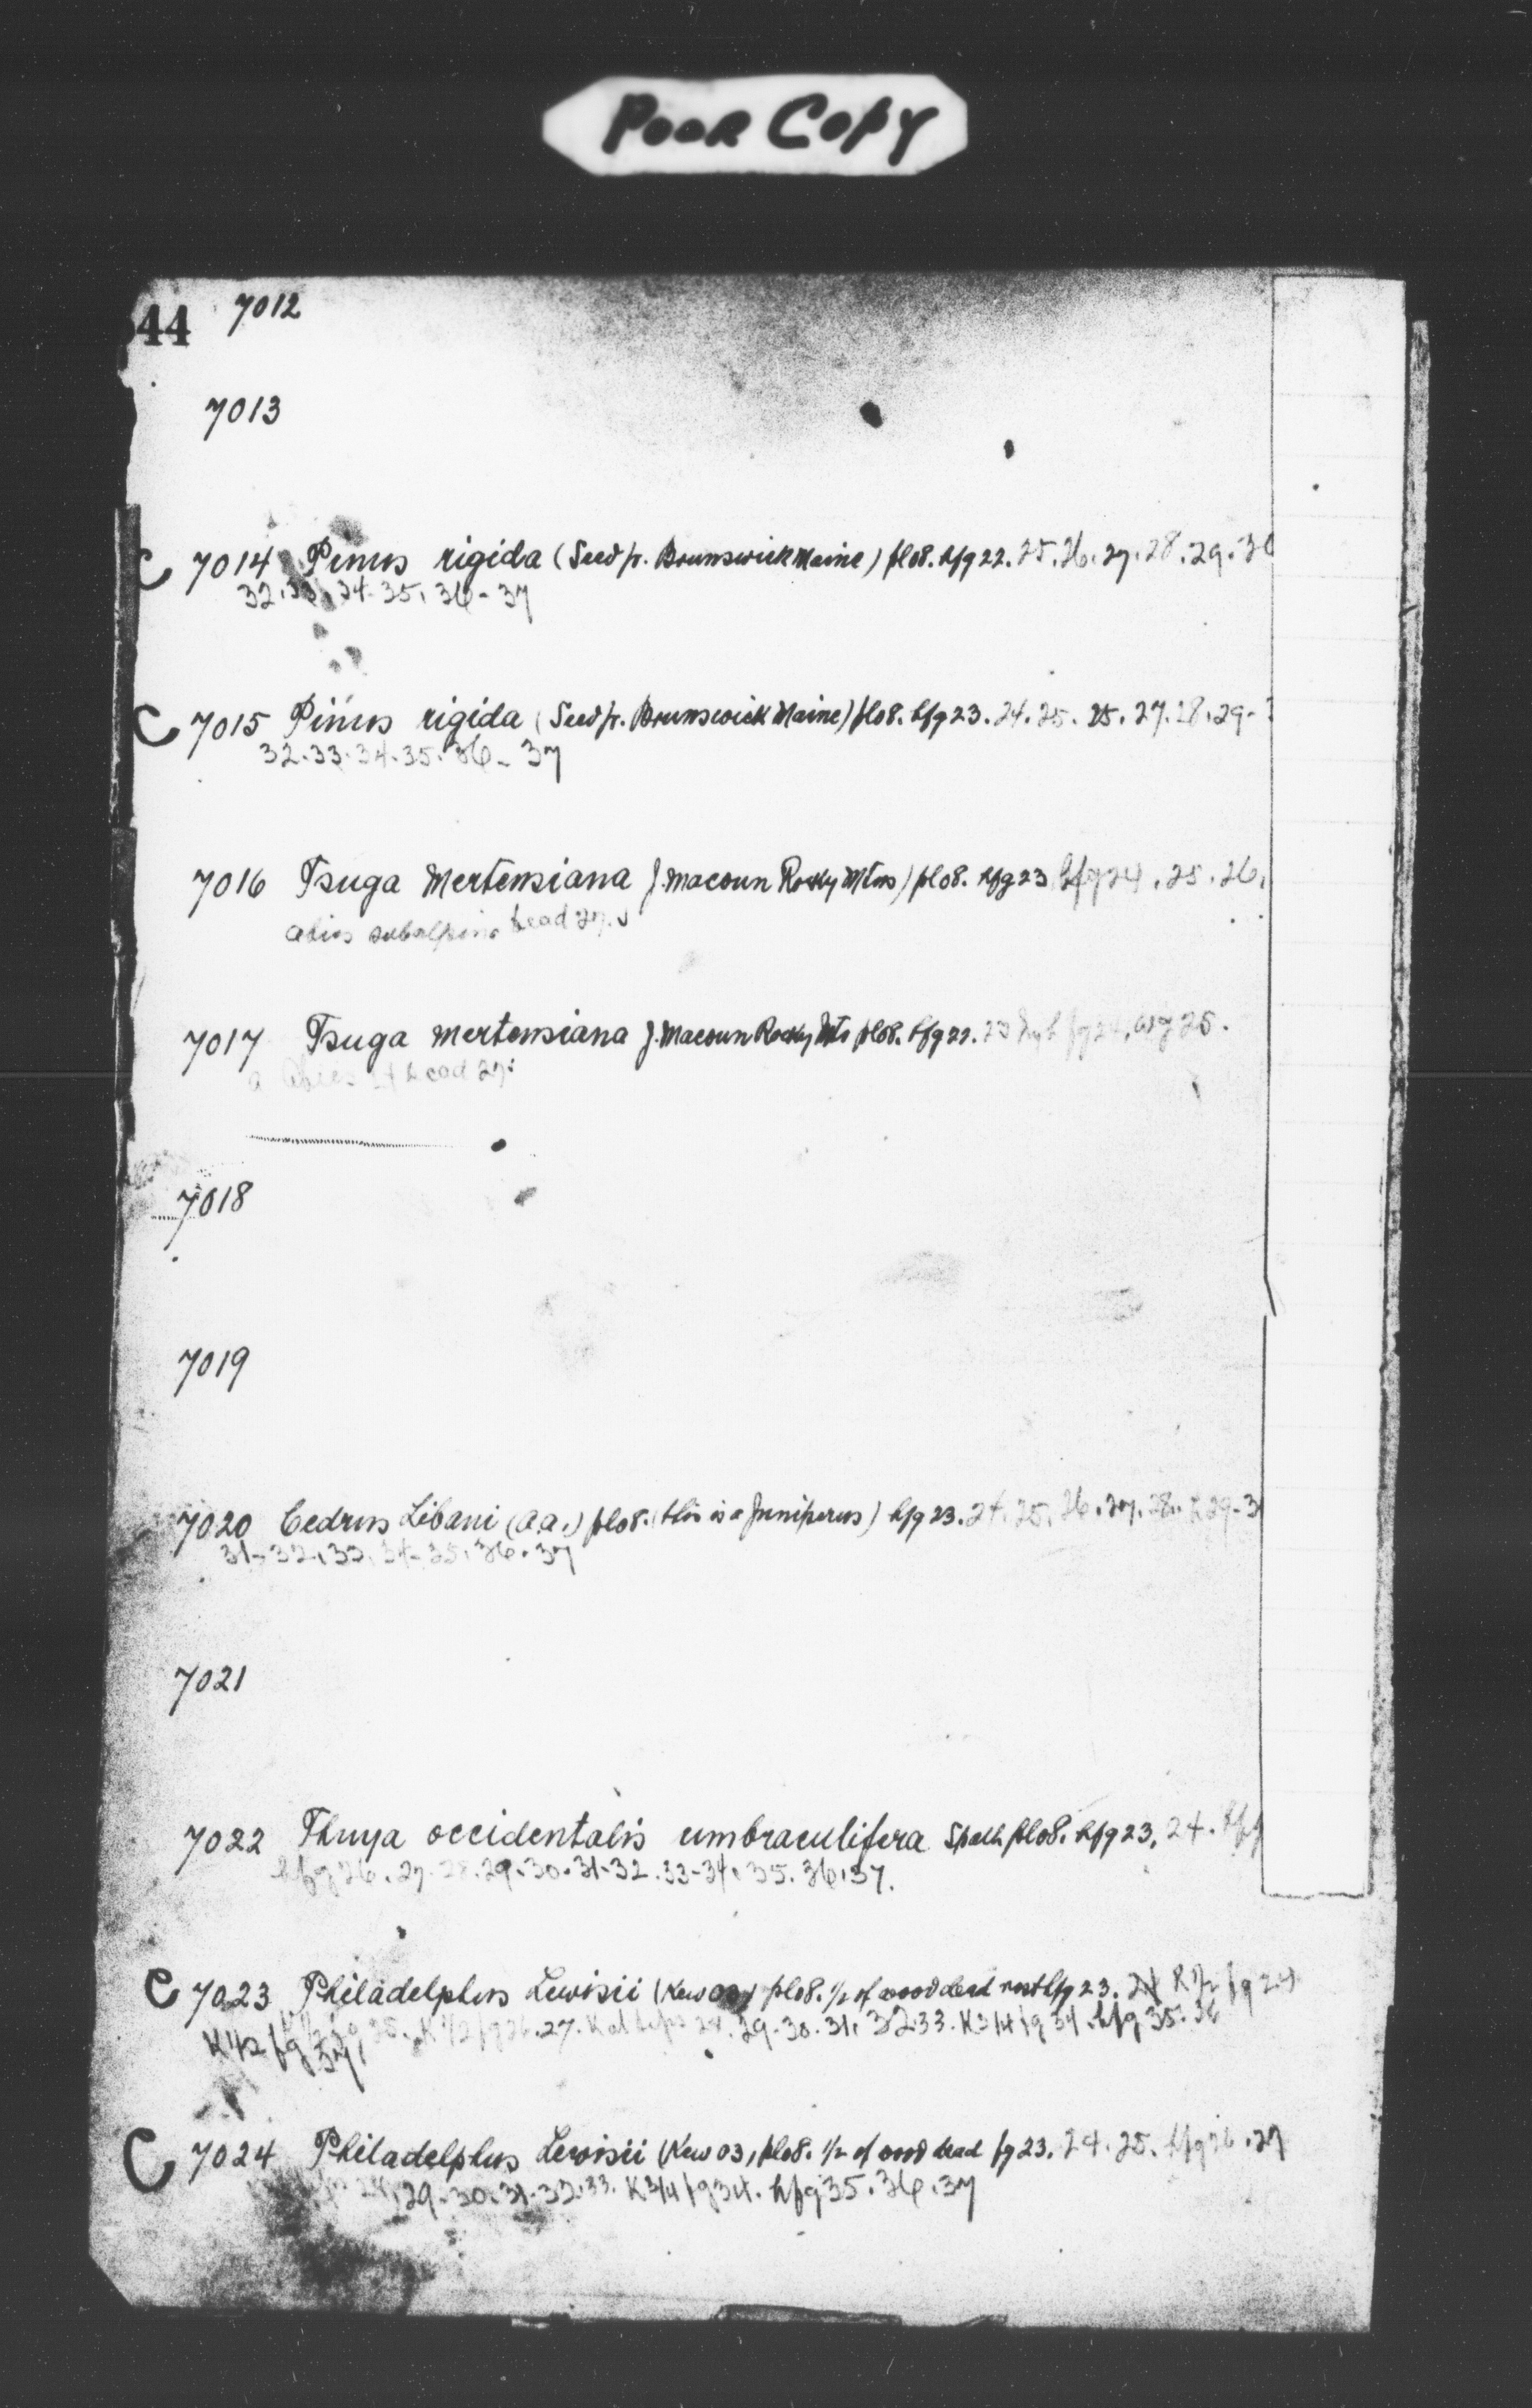 POOR COPY
44 7012
7013
C 7014 Pinus rigida (Seed fr. Brunswick Maine) pl08. hfg 22. 25. 26. 27. 28. 29. 30
32. 33. 34. 35. 36 - 37
C 7015 Pinus rigida (Seed fr. Brunswick Maine) pl08. hfg 23. 24. 25. 25. 27. 28. 29 -
32. 33. 34. 35. 36 - 37
7016 Tsuga Mertensiana J. Macoun Rocky Mtns) pl08. hfg 23 hfg 24. 25. 26.
abies subalpina dead 27.
7017 Tsuga mertensiana J. Macoun Rocky Mts pl08. hfg 22. 23 25.
a Abies dead 27.
7018
7019
7020 Cedrus Libani (a.a.) pl08. (this is a Juniperus) hfg 23. 24. 25. 26. 27. 28. 29 - 3
31 - 32. 33. 34 - 35. 36. 37
7021
7022 Thuya occidentalis umbraculifera Spath pl08. hfg 23. 24. hfg
hfg 26. 27. 28. 29. 30. 31 - 32. 33 - 34. 35. 36. 37.
C 7023 Philadelphus Lewisii (Kew 03) pl08. 1/2 of wood dead rest hfg 23. 24 K 1/2 fg 24
25. K 1/2 fg 26. 27. 28. 29. 30. 31. 32. 33. K 3/4 fg 34. hfg 35. 36
K 1/2 fg 37
C 7024 Philadelphus Lewisii (Kew 03, pl08. 1/2 of wood dead fg 23. 24. 25. hfg 26. 27
28. 29 - 30. 31 - 32. 33. K 3/4 fg 34. hfg 35. 36. 37